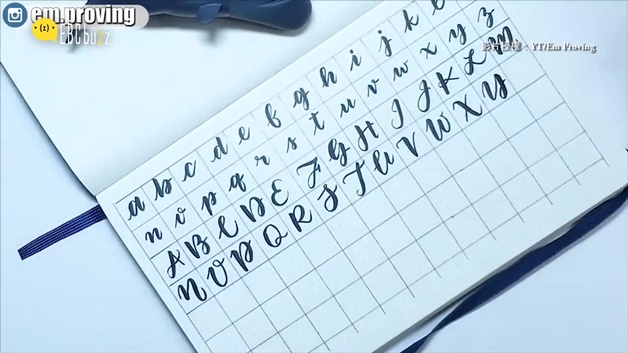 em.proving
EBCbuzz
影片授權：YT/Em Proving
a b c d e f g h i j k l
n o p q r s t u v w x y z
A B C D E F G H I J K L M
N O P Q R S T U V W X Y